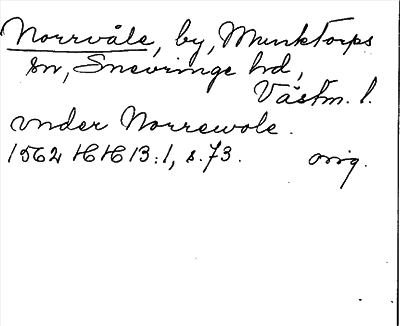 Norrvåle, by, Munktorps
sn, Snevringe hd,
Västm. l.
vnder Norrewole.
1562 HH B:1, s. 73. orig.